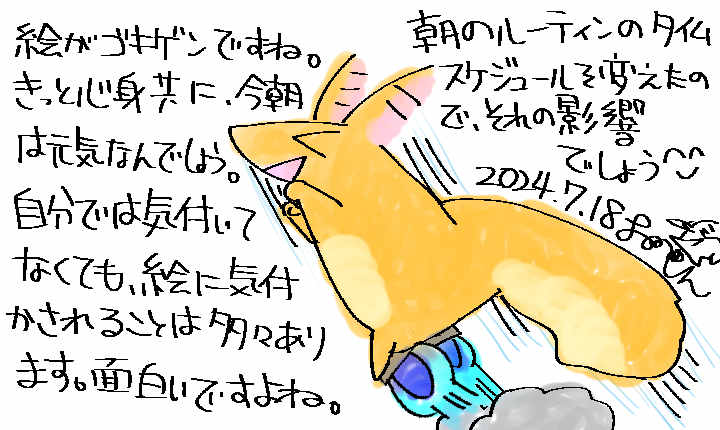 絵がゴキゲンですね。
きっと心身共に、今朝
は元気なんでしょう。
自分では気付いて
なくても、絵に気付
かされることは多々あり
ます。面白いですよね。
朝のルーティンのタイム
スケジュールを変えたの
で、それの影響
でしょう^^
2024.7.18